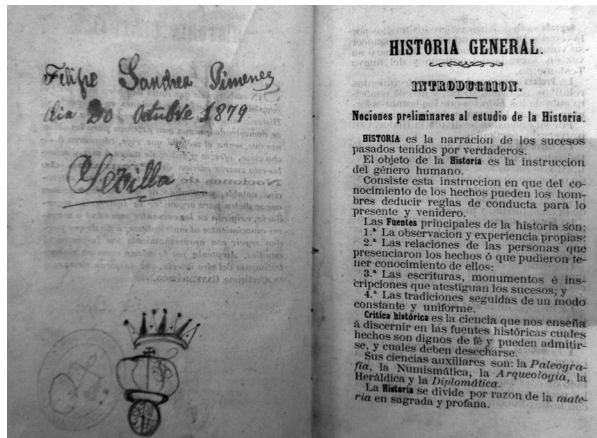 Felipe Sanchez Pimenez
dia 20 Octubre 1879
Sevilla
HISTORIA GENERAL.
INTRODUCCION.
Nociones preliminares al estudio de la Historia.
HISTORIA es la narracion de los sucesos
pasados tenidos por verdaderos.
El objeto de la Historia es la instruccion
del género humano.
Consiste esta instruccion en que del co-
nocimiento de los hechos pueden los hom-
bres deducir reglas de conducta para lo
presente y venidero.
Las Fuentes principales de la historia son:
1.ª La observacion y experiencia propias:
2.ª Las relaciones de las personas que
presenciaron los hechos ó que pudieron te-
ner conocimiento de ellos:
3.ª Las escrituras, monumentos é ins-
cripciones que atestiguan los sucesos; y
4.ª Las tradiciones seguidas de un modo
constante y uniforme.
Crítica histórica es la ciencia que nos enseña
á discernir en las fuentes históricas cuales
hechos son dignos de fé y pueden admitir-
se, y cuales deben desecharse.
Sus ciencias auxiliares son: la Paleogra-
fia, la Numismática, la Arqueología, la
Heráldica y la Diplomática.
La Historia se divide por razon de la mate-
ria en sagrada y profana.